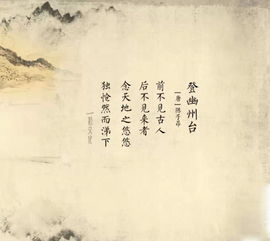 登幽州台
[唐]陈子昂
前不见古人
后不见来者
念天地之悠悠
独怆然而涕下